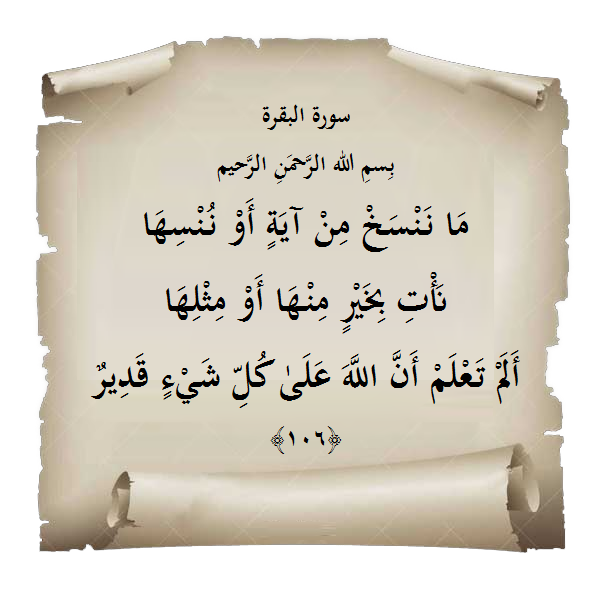 سورة البقرة
بِسمِ الله الرَّحمَنِ الرَّحيم
مَا نَنْسَخْ مِنْ آيَةٍ أَوْ نُنْسِهَا
نَأْتِ بِخَيْرٍ مِنْهَا أَوْ مِثْلِهَا
أَلَمْ تَعْلَمْ أَنَّ اللَّهَ عَلَىٰ كُلِّ شَيْءٍ قَدِيرٌ
﴿١٠٦﴾